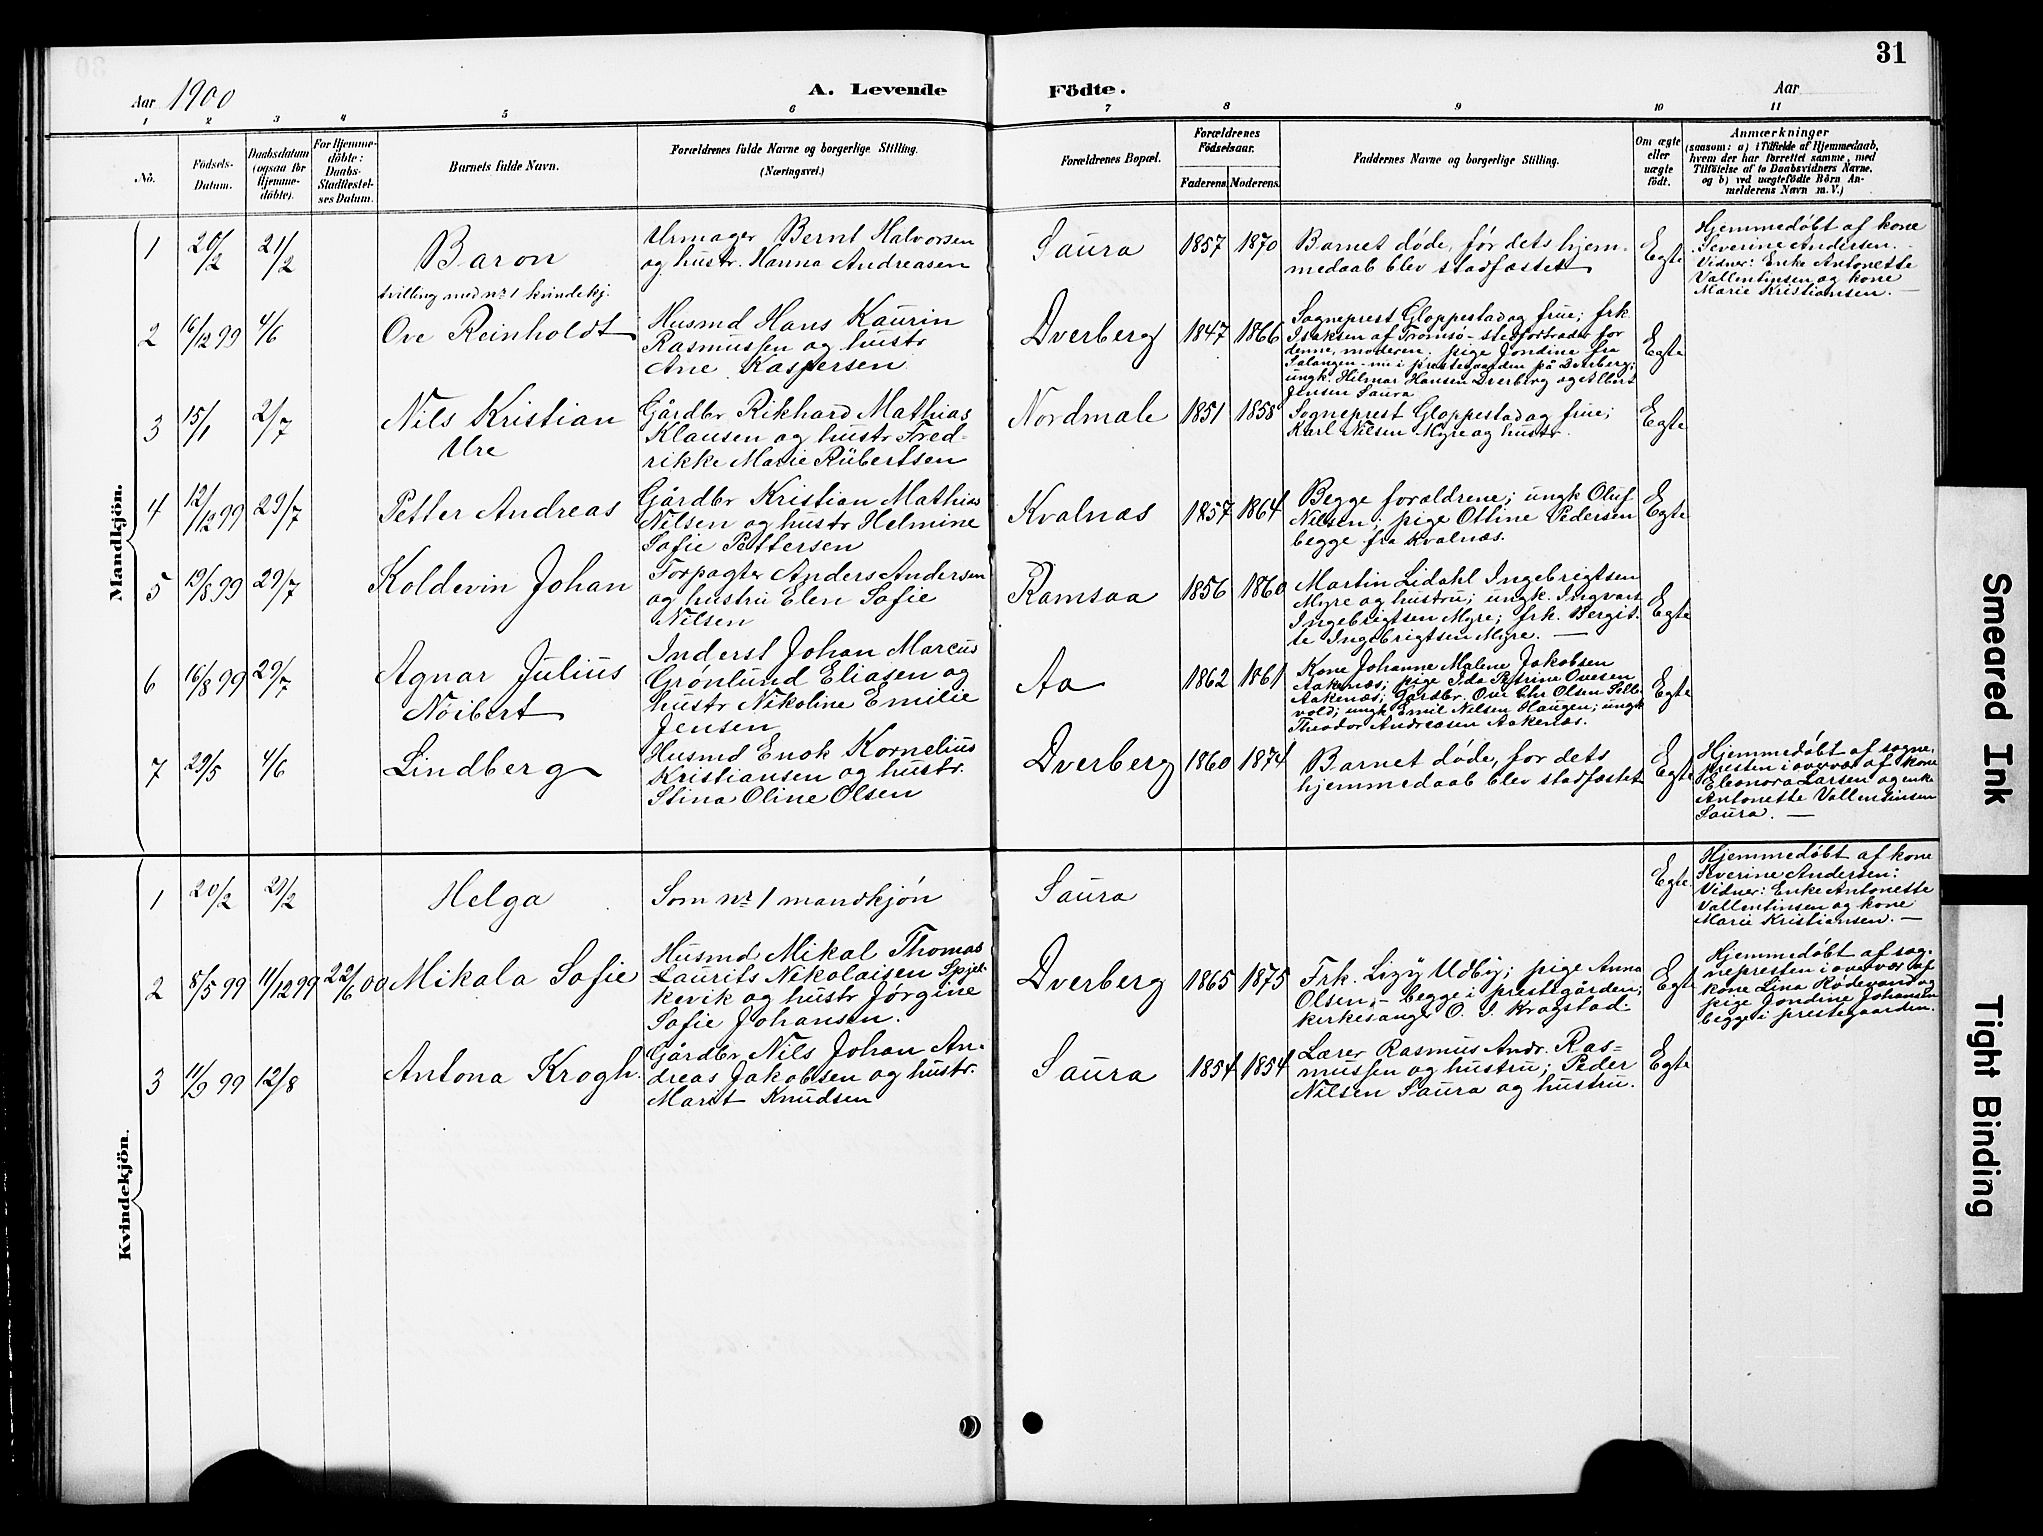 31
Aar 1900
A. Levende Födte.
Aar
1 2 3 4 5 6 7 8 9 10 11
No.
Födsels-
Datum.
Daabsdatum
(ogsaa for
Hjemme-
döbte).
For Hjemme-
döbte:
Daabs-
Stadfæstel-
ses Datum.
Barnets fulde Navn.
Forældrenes fulde Navne og borgerlige Stilling.
(Næringsvei.)
Forældrenes Bopæl.
Forældrenes
Födselsaar.
Faderens. Moderens.
Faddernes Navne og borgerlige Stilling.
Om ægte
eller
uægte
født.
Anmærkninger
(saasom: a) i Tilfælde af Hjemmedaab,
hvem der har forrettet samme, med
Tilföielse af to Daabsvidners Navne,
og b) ved uægtefödte Börn An-
melderens Navn m. V.)
Mandkjön.
1 20/2 21/2
Baron
tvilling med nr 1 kvindekj.
Urmager Bernt Halvorsen
og hustr. Hanna Andreasen
Saura 1857 1870
Barnet døde, før dets hjem-
medaab blev stadfæstet
Egte
Hjemmedøbt af kone
Severine Andersen.
Vidner: Enke Antonette
Vallentinsen og kone
Marie Kristiansen. —
2 16/12 99 4/6
Ove Reinholdt
Husmd Hans Kaurin
Rasmussen og hustr
Ane Kaspersen
Dverberg 1847 1866
Sogneprest Gloppestad og frue; frk.
Isaksen af Tromsø - stedfortræder for
denne, moderen. pige Jondine fra
Salangen - nu i prestegaarden på Dverberg;
ungk. Hilmar Hansen Dverberg og Albert
Jensen Saura
Egte
3 15/1 2/7
Nils Kristian
Ure
Gårdbr Rikhard Mathias
Klausen og hustr Fred-
rikke Marie Rübertsen
Nordmale 1851 1858
Sogneprest Gloppestad og frue;
Karl Nilsen Myre og hustr.
Egte
4 12/12 99 29/7
Petter Andreas
Gårdbr Kristian Mathias
Nilsen og hustr Helmine
Sofie Pettersen
Kvalnæs 1857 1864
Begge forældrene; ungk Oluf
Nilsen; pige Ottine Pedersen
begge fra Kvalnæs.
Egte
5 19/8 99 29/7
Koldevin Johan
Forpagter Anders Andersen
og hustru Elen Sofie
Nilsen
Ramsaa 1856 1860
Martin Lidahl Ingebrigtsen
Myre og hustru; ungk. Ingvart
Ingebrigtsen Myre; frk. Bergit-
te Ingebrigtsen Myre. —
Egte
6 16/8 99 29/7
Agnar Julius
Nöibert
Inderst Johan Marcus
Grønlund Eliasen og
hustr Nikoline Emilie
Jensen
Aa 1862 1861
Kone Johanne Malene Jakobsen
Aakenæs; pige Ida Petrine Ovesen
Aakenæs; Gårdbr. Ove Chr Olsen Selle-
vold; ungk Emil Nilsen Haugen; ungk
Theodor Andreasen Aakenæs.
Egte
7 29/5 4/6
Lindberg
Husmd Enok Kornelius
Kristiansen og hustr.
Stina Oline Olsen
Dverberg 1860 1874
Barnet døde, før dets
hjemmedaab blev stadfæstet
Egte
Hjemmedøbt af sogne-
presten i overvær af kone
Eleonora Larsen og enke
Antonette Vallentinsen
Saura. —
Kvindekjön.
1 20/2 21/2
Helga
Som nr 1 mandkjøn
Saura
Egte.
Hjemmedøbt af kone
Severine Andersen:
Vidner: Enke Antonette
Vallentinsen og kone
Marie Kristiansen. —
2 8/5 99 11/12 99 22/6 00
Mikala Sofie
Husmd Mikal Thomas
Laurits Nikolaisen Spjel-
kevik og hustr Jørgine
Sofie Johansen.
Dverberg 1865 1875
Frk. Lizzy Udby; pige Anna
Olsen, - begge i prestegården;
kirkesanger O. J. Kragstad
Egte
Hjemmedøbt af sog-
nepresten i overvær af
kone Lina Rødevand og
pige Jondine Johansen
begge i prestegaarden.
3 11/9 99 12/8
Antona Krogh.
Gårdbr Nils Johan An-
dreas Jakobsen og hustr.
Maret Knudsen
Saura 1854 1854
Lærer Rasmus Andr. Ras-
mussen og hustru; Peder
Nilsen Saura og hustru.
Egte
Smeared Ink
Tight Binding